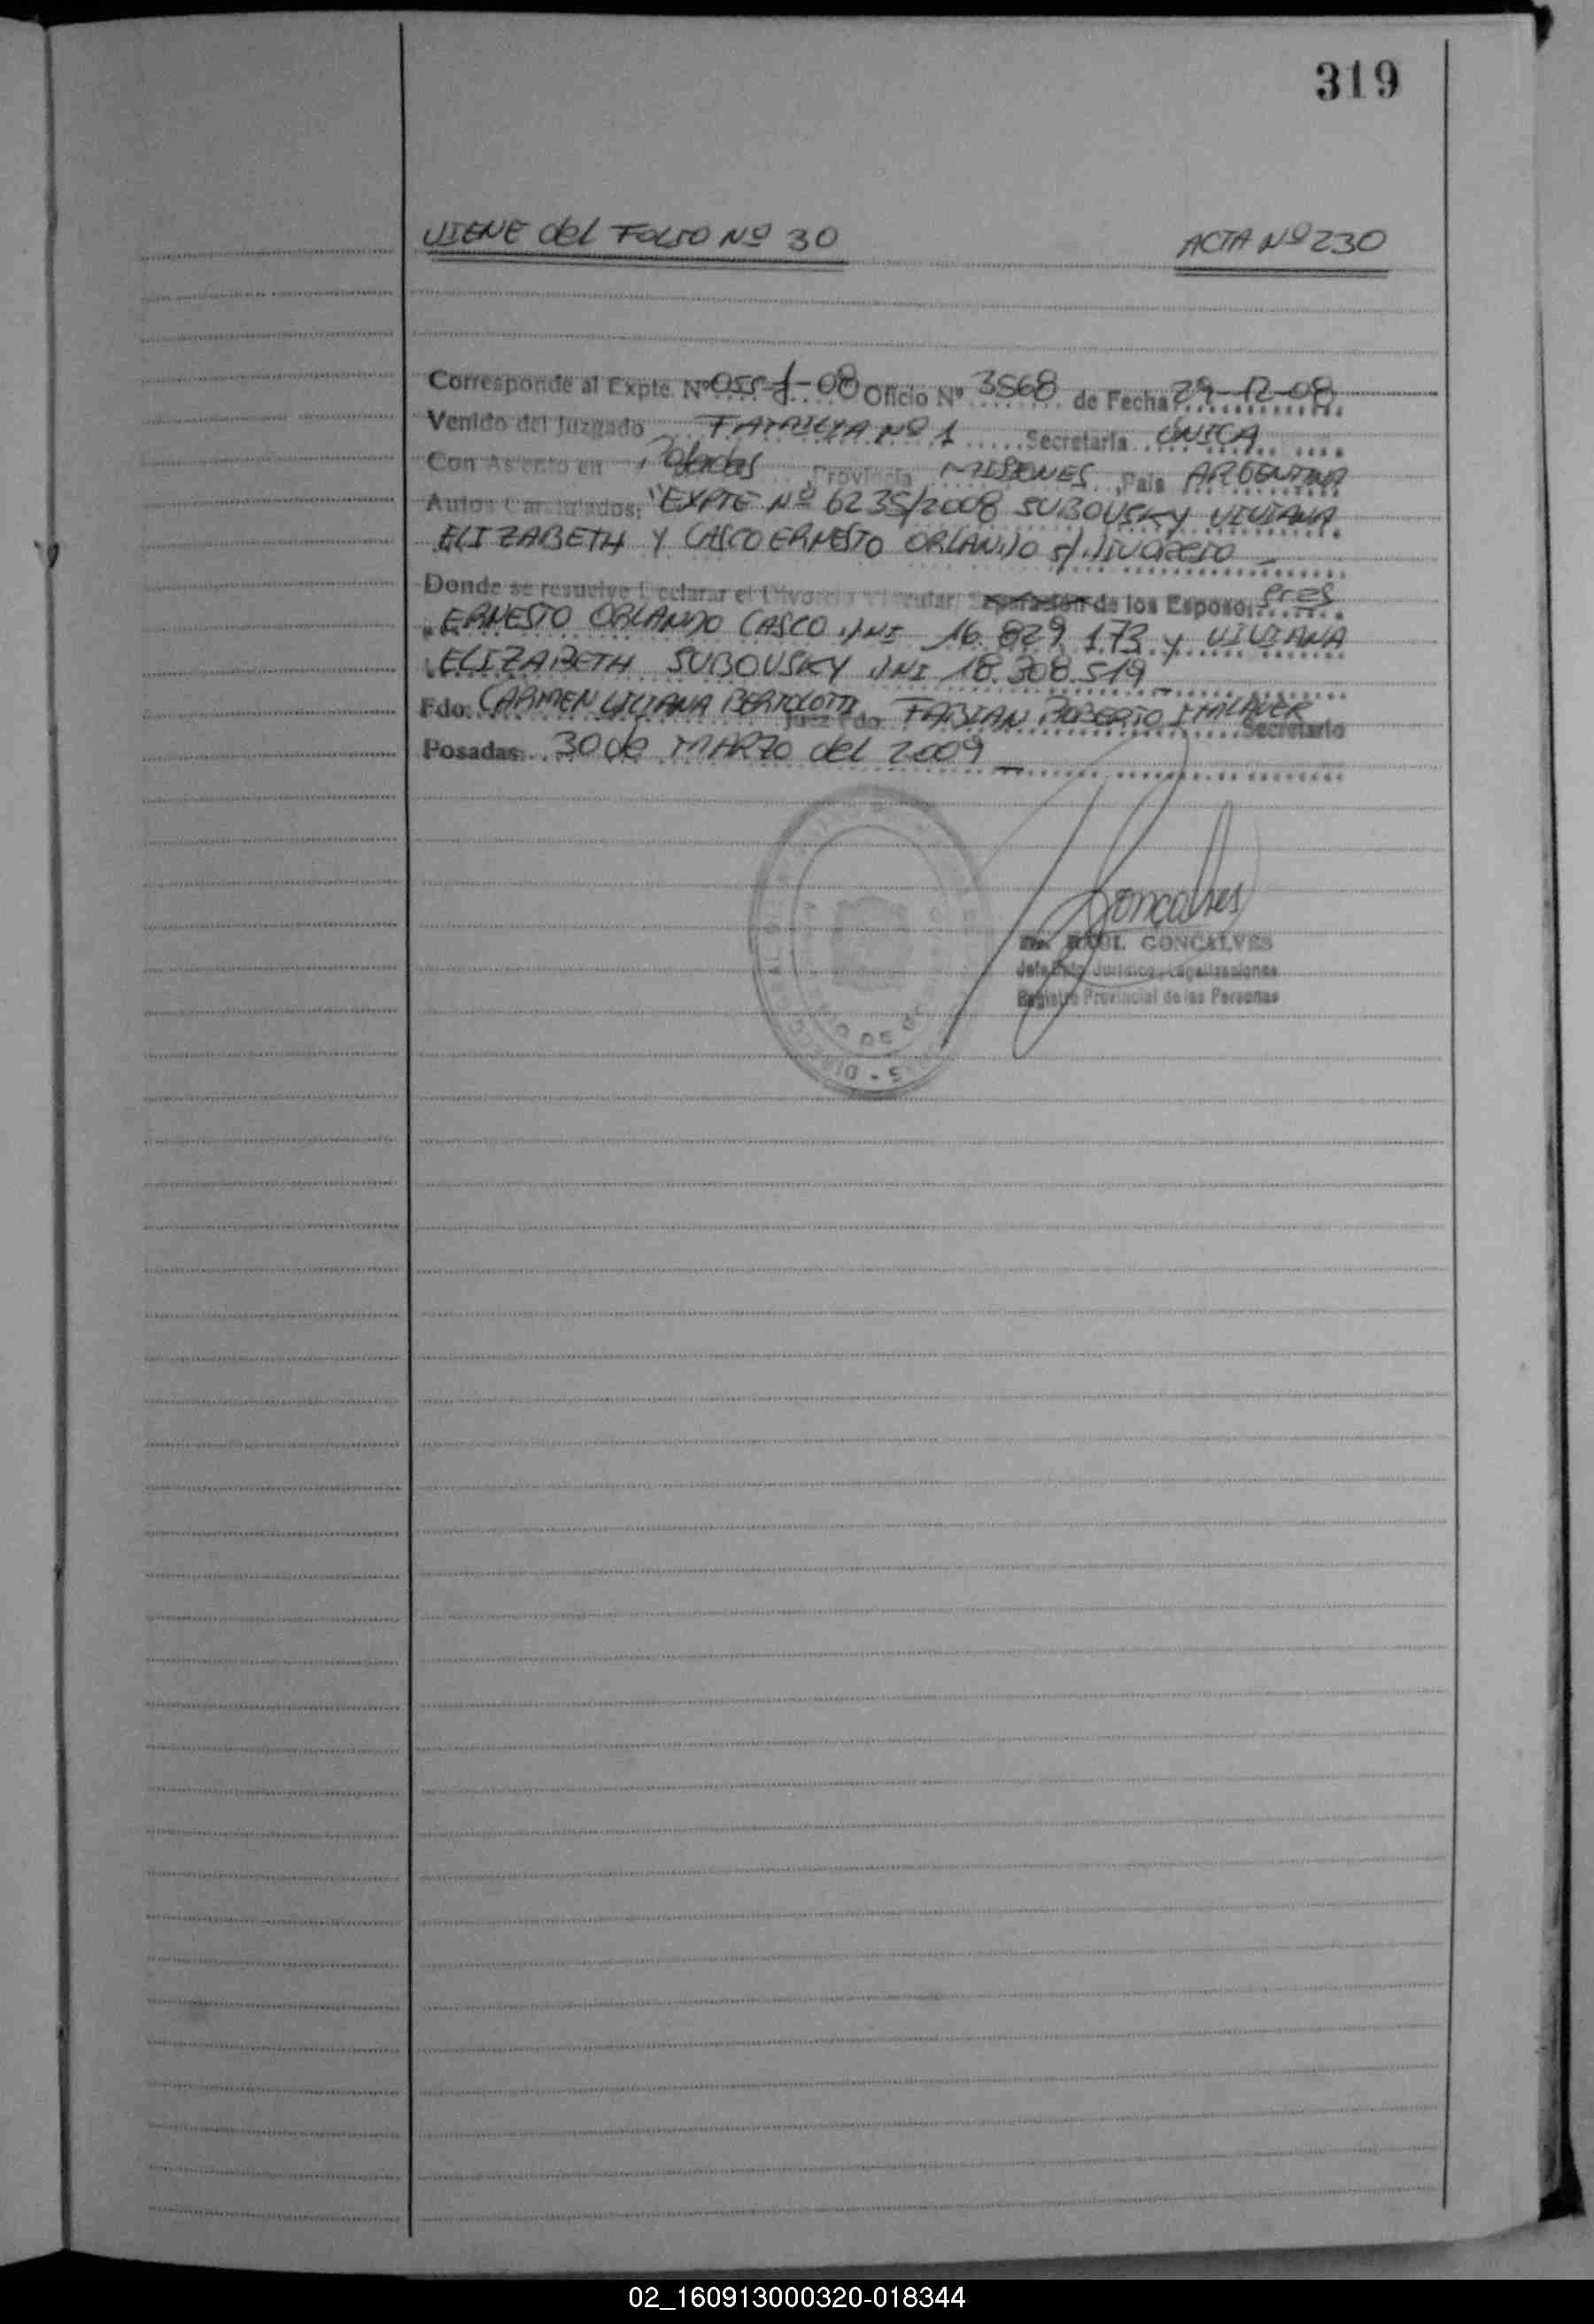 319
VIENE del FOLIO Nº 30 ACTA Nº 230
Corresponde al Expte. Nº 055-J-08 Oficio Nº 3568 de Fecha 29-12-08
Venido del Juzgado FAMILIA Nº 1 Secretaría ÚNICA
Con Asiento en Posadas Provincia MISIONES País ARGENTINA
Autos Caratulados: "EXPTE Nº 6235/2008 SUBOVSKY VIVIANA
ELIZABETH Y CASCO ERNESTO ORLANDO s/ DIVORCIO
Donde se resuelve Declarar el Divorcio Vincular Separación de los Esposos Sres
ERNESTO ORLANDO CASCO DNI 16.829.173 y VIVIANA
ELIZABETH SUBOVSKY DNI 18.308.519
Fdo. CARMEN LILIANA BERTOLOTTI Juez Fdo. FABIAN ROBERTO Secretario
Posadas 30 de MARZO del 2009
Gonçalves
RAUL GONCALVES
Jefe Dpto Jurídico, Legalizaciones
Registro Provincial de las Personas
02_160913000320-018344